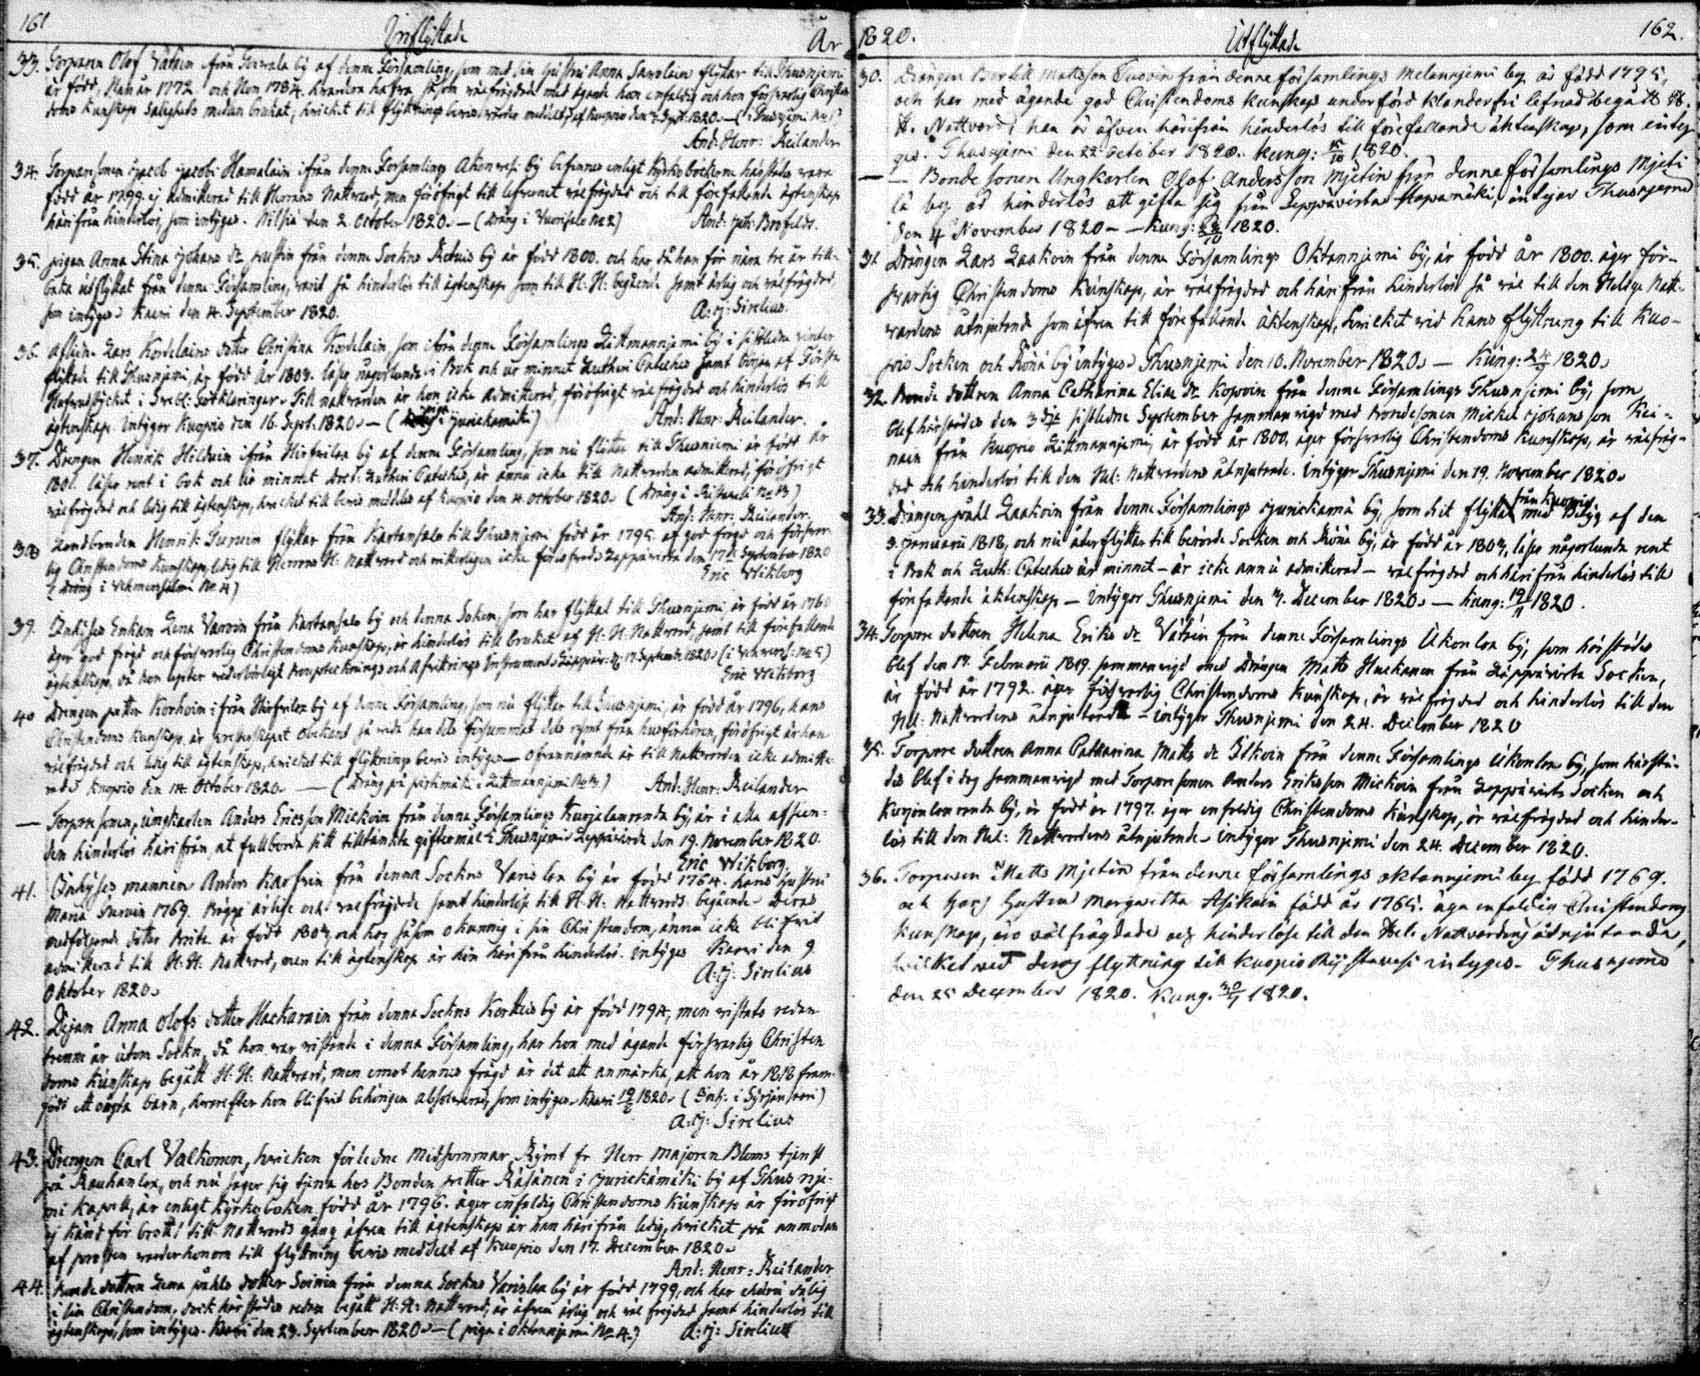 161 Inflyttade År
33. Torparen Olof Vätäin från Torvola by af denna Församling, som med sin hustru Anna Savolain flyttar till Thusnjemi
är född, Man år 1772 och Hon 1784. hvardera hafva såsom välfrägdade med ägande han enfaldig och hon försvarlig Christen
doms kunskap Salighets medlen brukat, hvilcket till flyttnings bevis varder meddelt af Kuopio den Sept. 1820. — (Thusnjemi No 15)
And: Henr: Reilander
34. Torparesonen Jacob Jacobs: Hamalain ifrån denna Församlings Akonvesi by befinnes enligt Kyrko böckerna härstädes vara
född år 1799. ej admitterad till Herrans Nattvard, men föröfrigt till lefvernet välfrägdad och till förefallande ägtenskap
härifrån hinderlös, som intygas. Nilsiä den 2 October 1820. — (Dräng i Vuorisalo No 2) And: Joh: Brofeldt.
35. Pigan Anna Stina Johans dr Hussin från denna Sockns Retuis by är född 1800. och har då han för nära tre år till-
baka utflyttat från denna Församling, varit så hinderlös till ägtenskap som till H: H: begående samt ärlig och välfrägdad,
som intygas Kaavi den 4. September 1820. A: J: Sirelius.
36. Aflidne Lars Kordelains dotter Christina Kordelain som ifrån denna Församlings Littmannjemi by i sistledne vinter
flyttade till Thusnjemi, är född År 1803. läser någorlunda i Bok och ur minnet Lutheri Cateches samt början af Första
Hufvudstycket i Svebl: Förklaringar. Till nattvarden är hon icke Admitterad, föröfrigt välfrägdad och hinderlös till
ägtenskap. Intygar Kuopio den 16. Sept. 1820. — (piga i Jurickamäki) And: Henr: Reilander.
37. Drengen Henrik Hilduin ifrån Hirfvilax by af denna Församling, som nu flyttar till Thusniemi är född år
1801. läser rent i bok och ur minnet Doct: Lutheri Cateches, är ännu icke till Nattvarden admitterad, föröfrigt
välfrägdad och ledig till ägtenskap, hvilcket till bevis meddelas af Kuopio den 4. October 1820. (Dräng i Ristavesi No 13)
And: Henr: Reilander.
38 Landbonden Henrik Turuin flyttar från Kartansalo till Thusnjemi född år 1795. af god frägd och försvar-
lig Christendoms kunskap, ledig till Herrans H: Nattvard och vitterligen icke förlofvad Leppävirta den 17de September 1820
(Dräng i Vehmersalmi No 4) Eric Wikborg
39. Inhyses Enkan Lena Varvin från Kartansalo by och denna Soken, som har flyttat till Thusnjemi är född år 1760
äger god frägd och försvarlig Christendoms Kunskap, är hinderlös till bruket af H: H: Nattvard, samt till förefallande
ägtenskap, då hon epter vederbörligt Boupteckinings och Afvittrings Instrument Leppäv: 17. Septembr 1820. (i Vehmers: No 5)
Eric Wikborg
40 Drengen petter Korhoin ifrån Hirfvilax by af denna Församling, som nu flyttar till Thusnjemi, är född år 1796, hans
Christendoms kunskap, är Prosterskapet obekant, så vida han dels försummat dels rymt från husförhören, föröfrigt är han
välfrägdad och ledig till ägtenskap, hvilcket till flyttnings bevis intygas — ofvannämnde är till Nattvarden icke admitte-
rad. Kuopio den 14 October 1820. — (Dräng på pirkimäki i Litmannjemi No 14) And: Henr: Reilander
— Torparesonen, ungkarlen Anders Ericsson Mickoin från denna Församlings Kurjalanranda by, är i alla afseen-
den hinderlös härifrån at fullborda sitt tilltänkte giftermål i Thusnjemi Leppävirta den 19. November 1820.
Eric Wikborg
41. Inhyses mannen Anders Karfvin från denna Sockns Varislax by är född 1764. hans hustru
Maria Survin 1769. Bägge ärlige och välfrägdade samt hinderlöse till H: H: Nattvards begående. Deras
medföljande dotter Brita är född 1804, och har såsom okunnig i sin Christendom, ännu icke blifvit
admitterad till H: H: Nattvard, men till ägtenskap är hon härifrån hinderlös. Intygas Kaavi den 9
Oktober 1820. A: J: Sirelius
42. Pigan Anna Olofs dotter Hackarain från denna Sockns Kortteis by är född 1794, men vistats redan
trenne år utom Sockn, då hon var vistande i denna Församling, har hon med ägande försvarlig Christen
doms kunskap begått H: H: Nattvard, men emot hennes frägd är det att anmärka, att hon år 1818 fram-
födt ett oägta barn, hvarefter hon blifvit behörigen absolverad, som intygas Kaavi 1820. (Inh: i Syrjänsaari)
A: J: Sirelius
43. Drengen Carl Valkonen, hvilcken förledne Midsommar Rymt fr Herr Majoren Bloms tjenst
på Rauhanlax, och nu säger sig tjena hos Bonden petter Räsänen i Jurickamäki by af Thusnje-
mi kapell, är enligt kyrkoboken född år 1796. äger enfaldig Christendoms kunskap är föröfrigt
ej känd för brott till Nattvards gång äfven till ägtenskap är han härifrån ledig, hvilcket på anmodan
af personen varder honom till flyttning bevis meddelt af Kuopio den 17. December 1820.
And: Henr: Reilander
44. Bonde dottren Lena påhls dotter Soinin från denna Sockns Varislax by är född 1799, och har ehuru dålig
i sin Christendom, dock härstädes redan begått H: H: Nattvard, är äfven ärlig och väl frejdad samt hinderlös till
ägtenskap, som intygas. Kaavi den 23. September 1820. — (piga i Oktannjemi No 4.) A: J: Sirelius
1820. Utflyttade 162.
30. Drängen Bertil Mattsson Tuovin från denne församlings Melannjemi by är född 1795,
och har med ägande god Christendoms kunskap under förd klanderfri lefnad begått H.
H. Nattvard; han är äfven härifrån hinderlös till förefallande äktenskap, som inty-
gas. Thusnjemi den 22 October 1820. kung: 15/10 1820.
— Bonde sonen Ungkarlen Olof Andersson Mjetin från denne församlings Mjeti
lä by är hinderlös att gifta sig från Leppävirta Hapamäki, intygar Thusnjemi
den 4 November 1820 — kung: 1820.
31. Drängen Lars Laakoin från denna Församlings Oktannjemi by, är född år 1800. äger för-
svarlig Christendoms Kunskap, är välfrägdad och härifrån hinderlös så väl till den Heliga Natt-
vardens åtnjutande som äfven till förefallande Äktenskap, hvilcket vid hans flyttning till Kuo-
pio Socken och Rönä by intygas. Thusnjemi den 10. November 1820. — Kung: 1820.
32. Bonde dottren Anna Catharina Elias dr Kopoin från denna Församlings Thusnjemi by, som
blef härstädes den 3die sistledne September sammanvigd med Bondesonen Mickel Johansson Rei-
nain från Kuopio Littmannjemi, är född år 1800. äger försvarlig Christendoms Kunskap, är välfräg-
dad och hinderlös till den Hel: Nattvardens åtnjutande. Intygar Thusnjemi den 19. November 1820.
33. Drängen påhl Laakoin från denna Församlings Jurickamä by, som hit flyttat från Kuopio med Betyg af den
3. Januarii 1818, och nu åter flyttar till berörde Socken och Rönä by, är född år 1804, läser någorlunda rent
i Bok och Luth: Cateches ur minnet — är icke ännu admitterad — välfrägdad och härifrån hinderlös till
förefallande äktenskap — Intygar Thusnjemi den 4. December 1820. — Kung: 19/11 1820.
34. Torpare dottren Helena Eriks dr Vätäin från denna Församlings Ukonlax by, som härstädes
blef den 14. Februarii 1819. sammanvigd med Drängen Matts Huckanen från Leppävirta Socken,
är född år 1792. äger försvarlig Christendoms Kunskap, är välfrägdad och hinderlös till den
Hel: Nattvardens åtnjutande — intygar Thusnjemi den 24. December 1820
35. Torpare dottren Anna Catharina Matts dr Idkoin från denna Församlings Ukonlax by, som härstä-
des blef i dag sammanvigd med Torpare sonen Anders Eriksson Mickoin från Leppävirta Socken och
Kurjalanranda by, är född år 1797. äger enfaldig Christendoms Kunskap, är välfrägdad och hinder-
lös till den Hel: Nattvardens åtnjutande. Intygar Thusnjemi den 24. December 1820.
36. Torparen Matts Mjetin från denne församlings oktannjemi by född 1769.
och hans hustru Margaretha Asikain född år 1765. äga enfaldig Christendoms
kunskap, äro välfrägdade och hinderlöse till den Hele Nattvardens åtnjutande,
hvilket vid deras flyttning till Kuopio Ristavesi intygas. Thusnjemi
den 25 December 1820. kung. 1820.